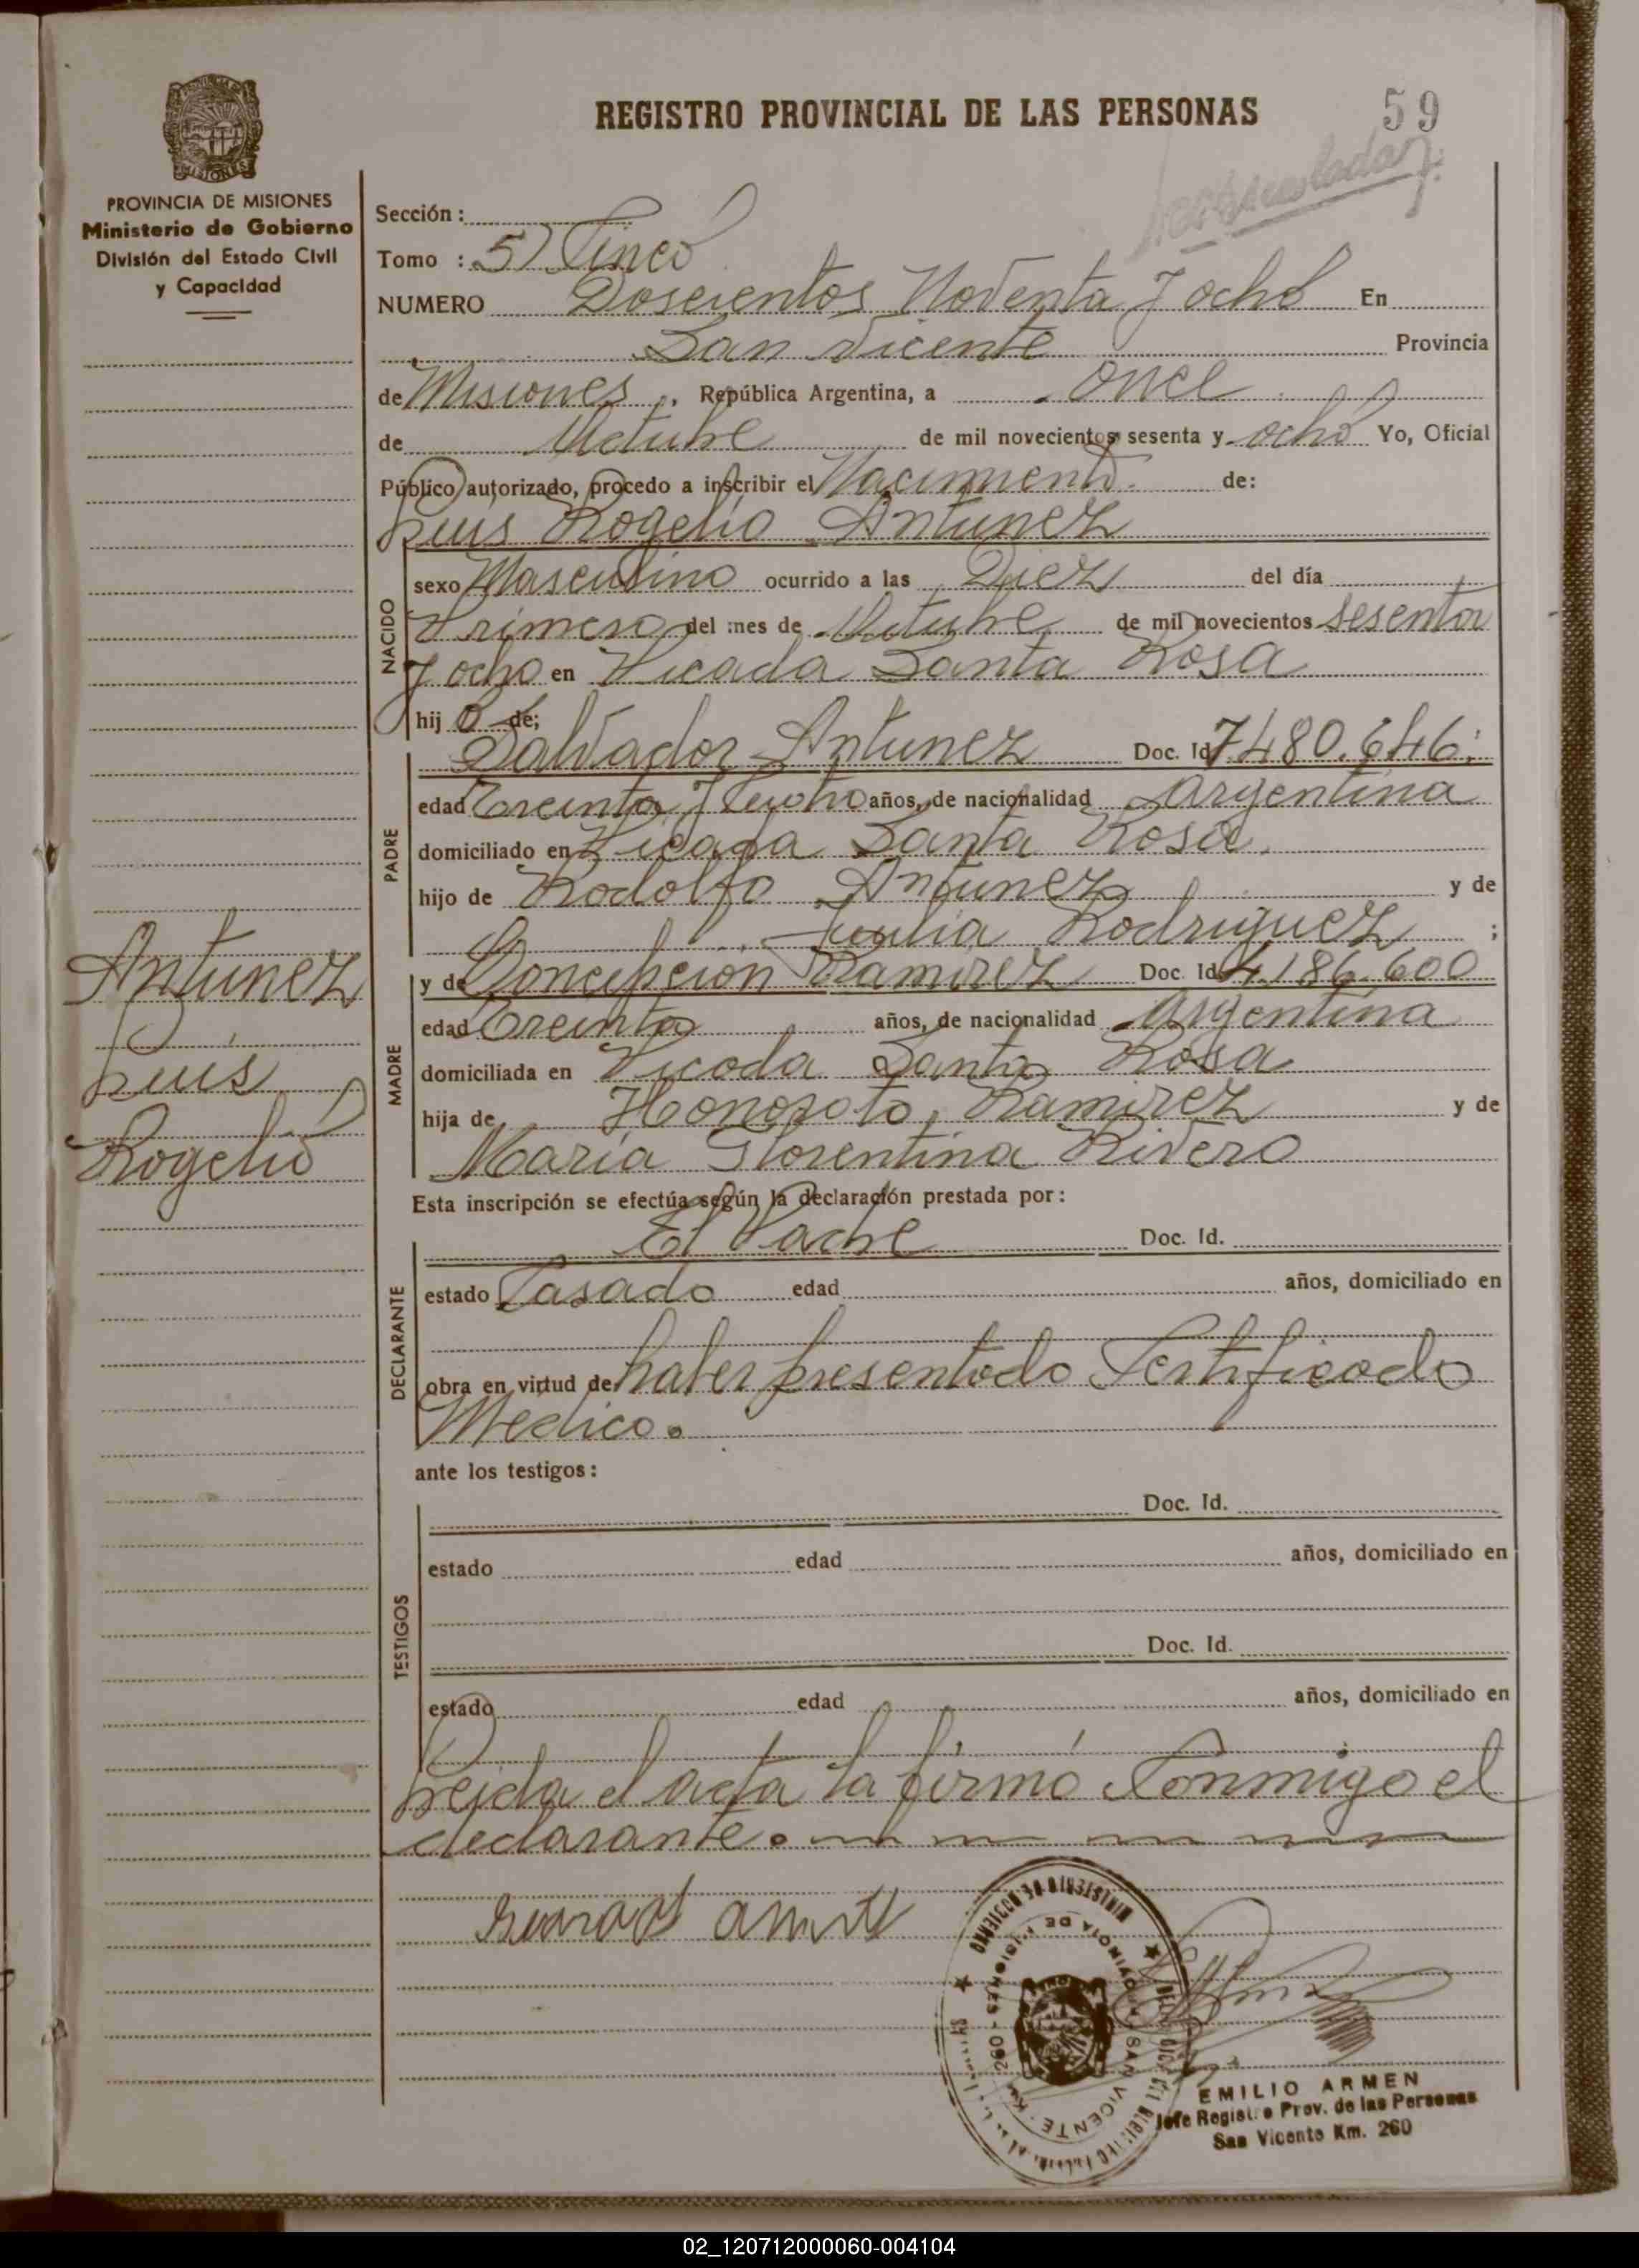 REGISTRO PROVINCIAL DE LAS PERSONAS
59
PROVINCIA DE MISIONES
Ministerio de Gobierno
División del Estado Civil
y Capacidad
Sección :
Tomo : 5) Cinco
NUMERO Doscientos Noventa y ocho En
San Vicente Provincia
de Misiones, República Argentina, a once
de Octubre de mil novecientos sesenta y ocho Yo, Oficial
Público autorizado, procedo a inscribir el Nacimiento. de:
Luis Rogelio Antunez
NACIDO
sexo Masculino ocurrido a las Diez del día
Primero del mes de Octubre de mil novecientos sesenta
y ocho en Picada Santa Rosa
hij o de;
PADRE
Salvador Antunez Doc. Id 7480.646;
edad Treinta y años, de nacionalidad Argentina
domiciliado en Picada Santa Rosa,
hijo de Rodolfo Antunez y de
Julia Rodriguez ;
MADRE
y de Concepcion Ramirez Doc. Id 4.186.600
edad Treinta años, de nacionalidad Argentina
domiciliada en Picada Santa Rosa
hija de Honorato Ramirez y de
María Florentina Rivero
Antunez
Luis
Rogelio
Esta inscripción se efectúa según la declaración prestada por :
DECLARANTE
El Padre Doc. Id.
estado Casado edad años, domiciliado en
obra en virtud de haber presentado Certificado
Medico.
ante los testigos :
TESTIGOS
Doc. Id.
estado edad años, domiciliado en
Doc. Id.
estado edad años, domiciliado en
Leida el acta la firmó Conmigo el
declarante.
MINISTERIO DE GOBIERNO
SAN VICENTE, Km. 260
EMILIO ARMEN
Jefe Registro Prov. de las Personas
San Vicente Km. 260
02_120712000060-004104